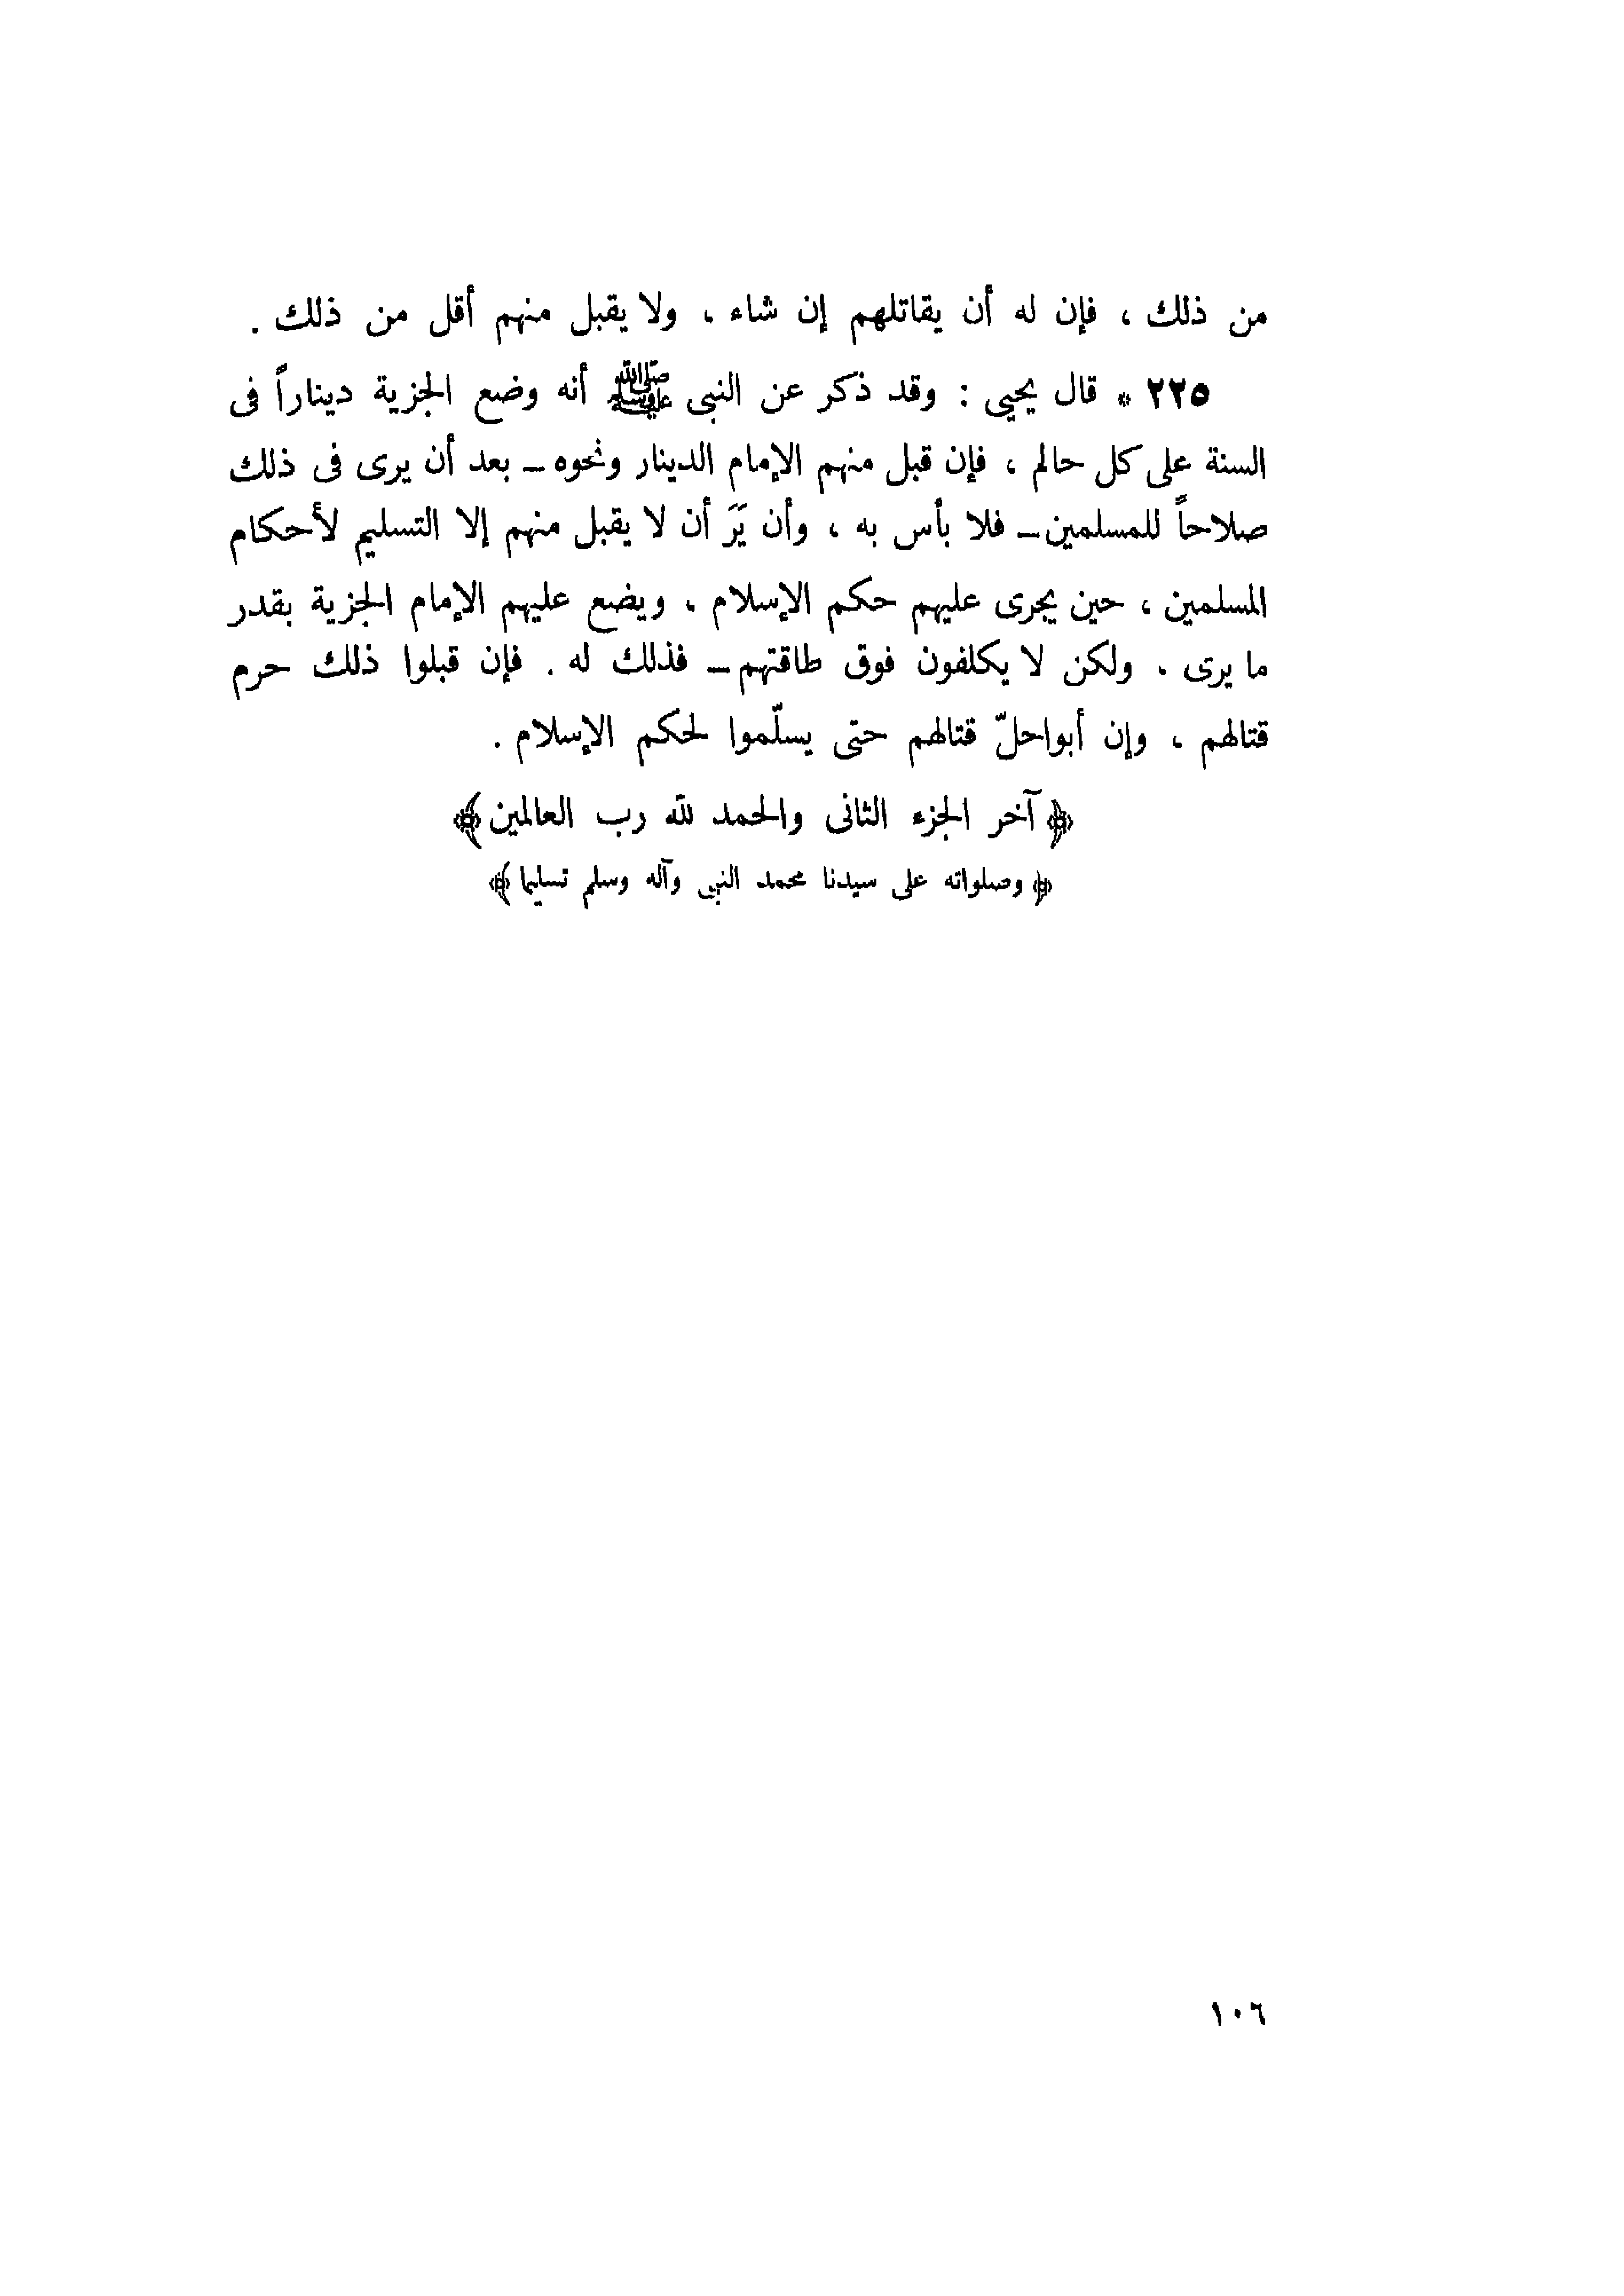 من ذلك ، فإن له أن يقاتلهم إن شاء ، ولا يقبل منهم أقل من ذلك .
٢٢٥ * قال يحيى : وقد ذكر عن النبى ﷺ أنه وضع الجزية ديناراً فى
السنة على كل حالم ، فإن قبل منهم الإمام الدينار ونحوه ــ بعد أن يرى فى ذلك
صلاحاً للمسلمين ــ فلا بأس به ، وأن يَرَ أن لا يقبل منهم إلا التسليم لأحكام
المسلمين ، حين يجرى عليهم حكم الإسلام ، ويضع عليهم الإمام الجزية بقدر
ما يرى ، ولكن لا يكلفون فوق طاقتهم ــ فذلك له . فإن قبلوا ذلك حرم
قتالهم ، وإن أبوا حلّ قتالهم حتى يسلّموا لحكم الإسلام .
﴿ آخر الجزء الثانى والحمد لله رب العالمين ﴾
﴿ وصلواته على سيدنا محمد النبى وآله وسلم تسليما ﴾
١٠٦